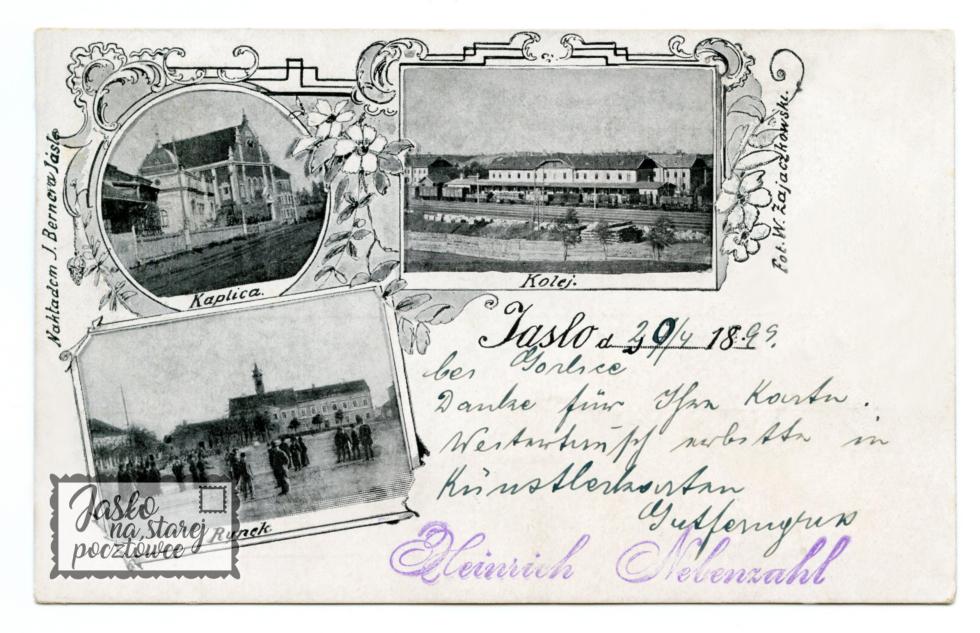 Nakładem J. Bernera Jasło
Kaplica.
Kolej.
Fot. W. Zajaczkowski.
Rynek.
Jasło d 30/4 1899.
bei Gorlice
Danke für Ihre Karte.
Weitertausch erbitte in
Künstlerkarten
Heinrich Nebenzahl
Jasło
na starej
pocztówce